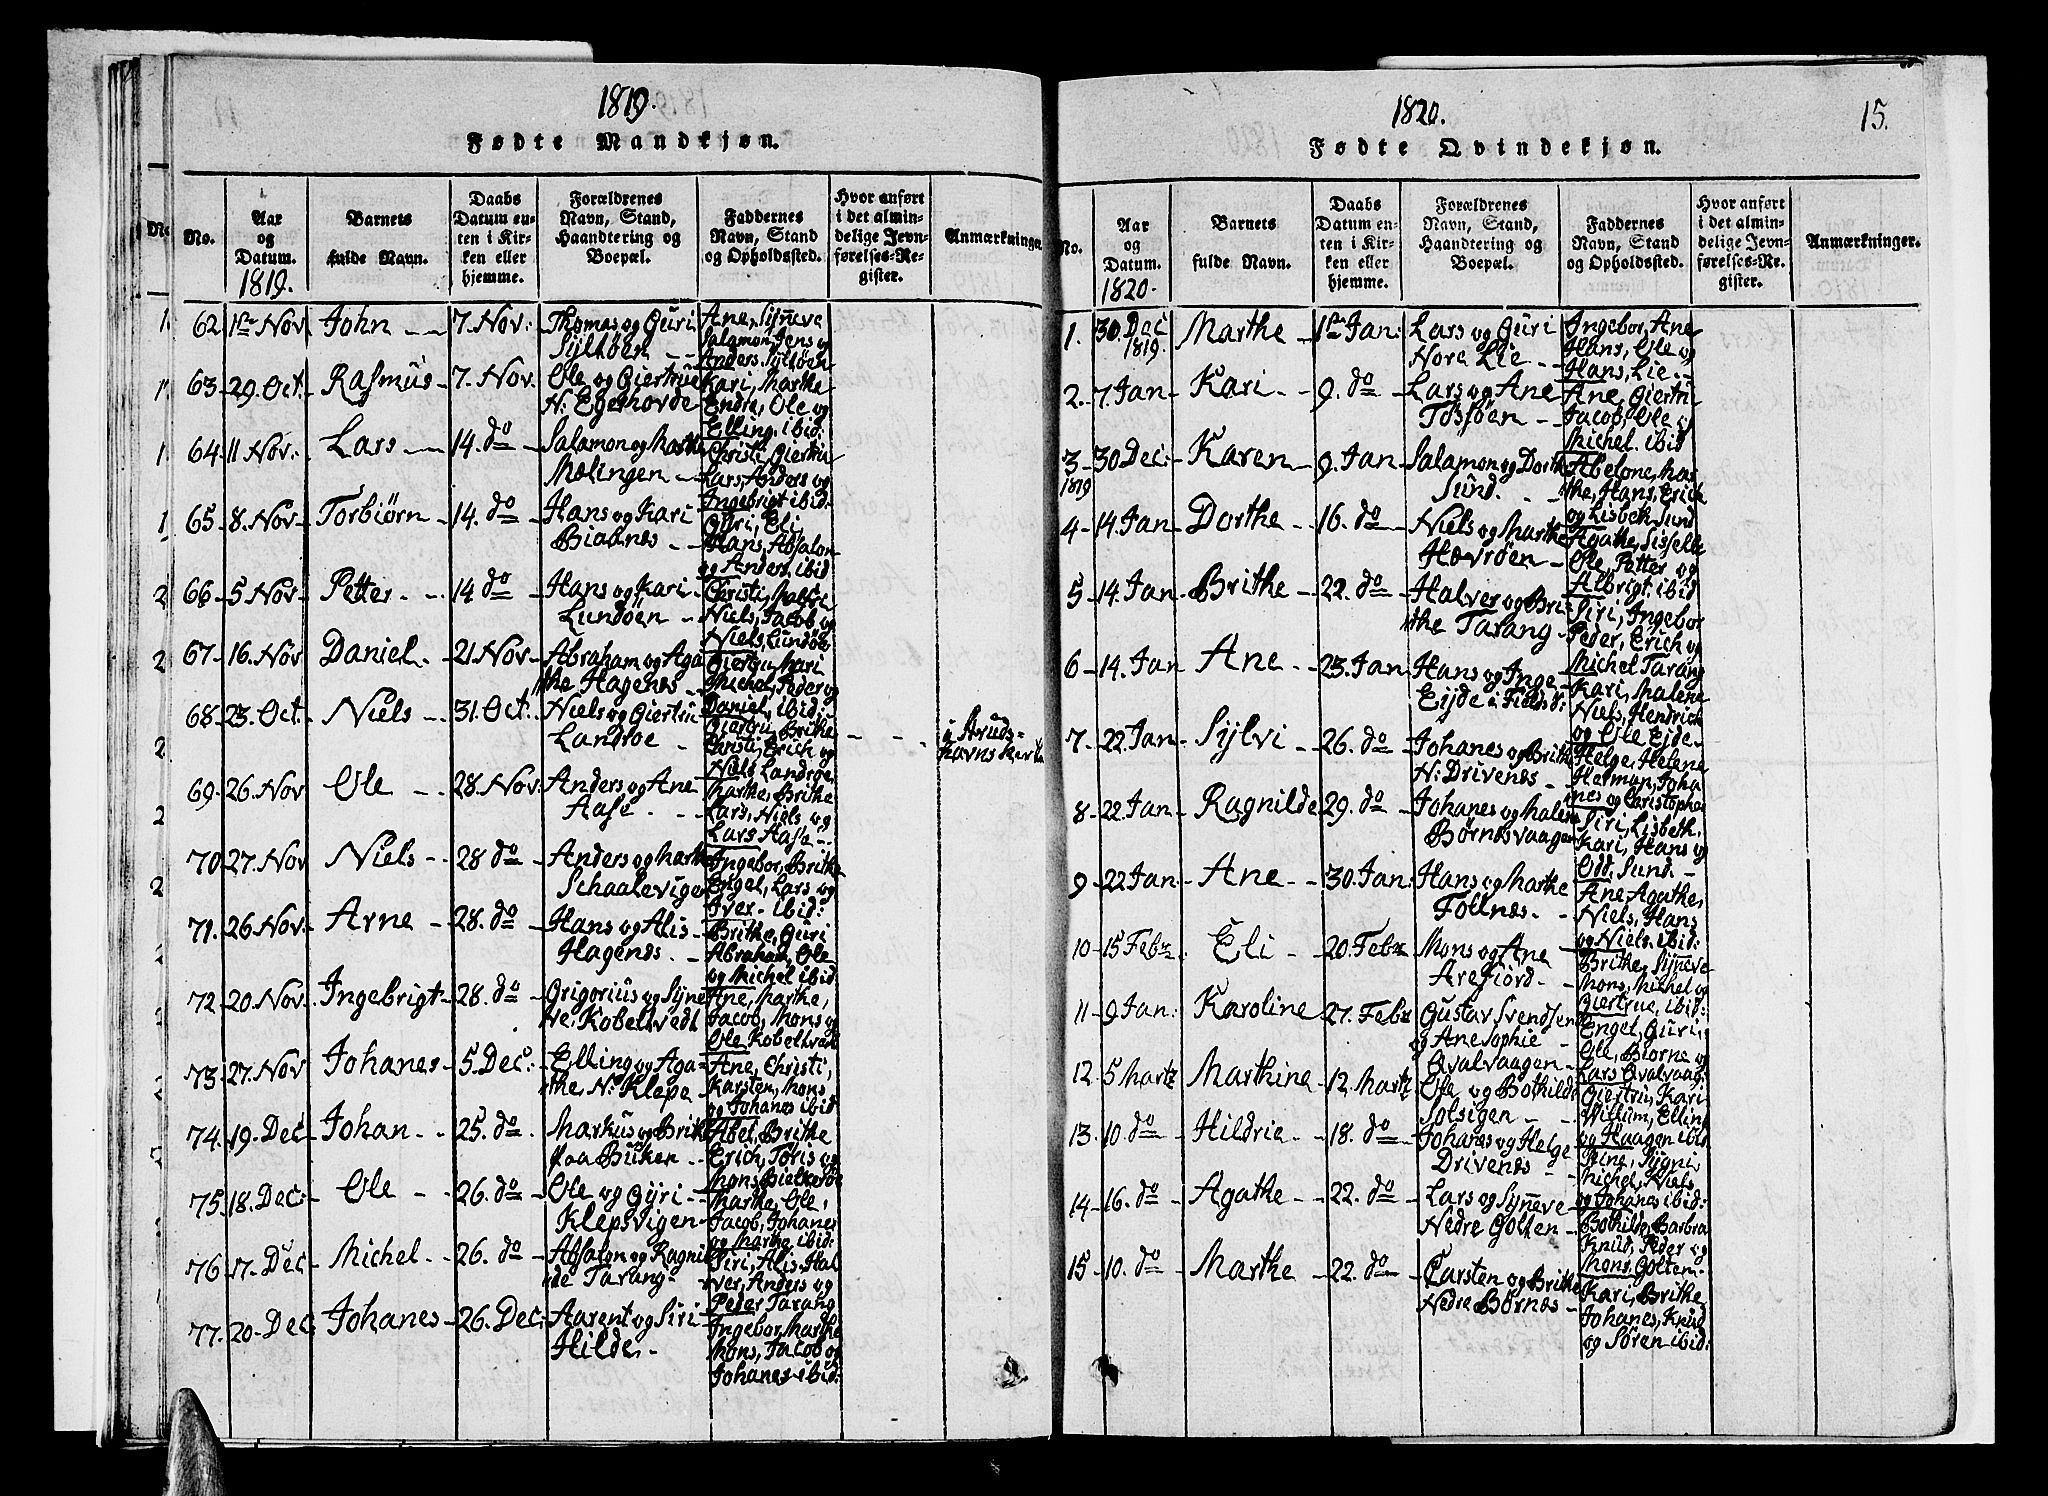 1819.
Fødte Mandkjøn.
No.
Aar
og
Datum.
1819.
Barnets
fulde Navn.
Daabs
Datum en-
ten i Kir-
ken eller
hjemme.
Forældrenes
Navn, Stand,
Haandtering og
Boepæl.
Faddernes
Navn, Stand
og Opholdssted.
Hvor anført
i det almin-
delige Jevn-
førelses-Re-
gister.
Anmærkninger.
62 1ste Nov John 7. Nov: Thomas og Guri
Syltøen
Ane, Synneve
Salamon, Jens og
Anders. Syltøen
63 29. Oct. Rasmus 7. Nov. Ole og Giertrue
N: Egerhovde
Kari, Marthe
Endre, Ole og
Elling. ibid:
64 11 Nov. Lars 14. do Salamon og Marthe
Mølingen
Christi, Giertru
Lars, Anders og
Ingebrigt ibid:
65 8. Nov Torbiørn 14. do Hans og Kari
Biaanes
Guri, Eli
Hans, Absalon
og Anders, ibid
66 5 Nov Petter 14 do Hans og Kari
Lundøen
Christi, Malene
Niels, Jacob og
Niels, Lundøe
67 16. Nov Daniel 21 Nov Abraham og Aga
the Hagenes
Giertru, Mari
Michel, Peder og
Daniel, ibid:
68 23. Oct Niels 31. Oct. Niels og Giertru
Landroe
Giertru, Brithe
Christi, Erich og
Niels, Landroe
i Strudshavns Kirke
69. 26. Nov Ole 28. Nov: Anders og Ane
Aase
Marthe, Brithe
Lars, Niels og
Lars Aase
70 27. Nov Niels 28 do Anders og Marthe
Schaalevigen
Ingebor, Brithe
Engel, Lars og
Iver. ibid:
71. 26 Nov. Arne 28. do Hans og Alis
Hagenes.
Brithe, Guri
Abraham, Ole
og Michel ibid
72 20. Nov Ingebrigt 28. do Grigorius og Syne
ve, Kobeltvedt
Ane, Marthe,
Jacob, Mons og
Ole Kobeltvedt
73 27. Nov Johanes 5. Dec: Elling og Aga
the, N: Klepe
Ane, Christi,
Karsten, Mons
og Johanes ibid
74. 19. Dec Johan 25. do Markus og Brithe
paa Buken
Abel, Brithe
Erich, Toris og
Mons Bielkerøe
75 18. Dec: Ole 26. do Ole og Gyri
Klepsvigen
Marthe, Ole,
Jacob, Johanes
og Marthe ibid:
76 17. Dec Michel 26. do Absalon og Ragnil
de Tarang
Siri, Alis, Hal
ver, Anders og
Peder Tarang
77. 20. Dec Johanes 26. Dec: Aarent og Siri
Hilde.
Ingebor, Marthe
Mons, Jacob og
Johanes ibid:
1820.
15.
Fødte Qvindekjøn.
No.
Aar
og
Datum.
1820.
Barnets
fulde Navn.
Daabs
Datum en-
ten i Kir-
ken eller
hjemme.
Forældrenes
Navn, Stand,
Haandtering og
Boepæl.
Faddernes
Navn, Stand
og Opholdssted.
Hvor anført
i det almin-
delige Jevn-
førelses-Re-
gister.
Anmærkninger.
1. 30. Dec
1819. Marthe 1ste Jan: Lars og Guri
Nore Lie
Ingebor, Ane
Hans, Ole og
Hans, Lie.
2. 7. Jan Kari 9. do Lars og Ane
Tofsøen
Ane, Giertri
Jacob, Ole og
Michel. ibid
3 30 Dec:
1819 Karen 9. Jan Salamon og Dorthe
Sund.
Abelone, Mar
the, Hans, Erich
og Lisbeth Sund
4 14. Jan Dorthe 16. do Niels og Marthe
Hevrøen
Agathe, Sisselle
Ole, Petter og
Albrigt. ibid
5 14. Jan Brithe 22. do Halver og Bri
the Tarang
Siri, Ingebor
Peder, Erich og
Michel Tarang
6 14. Jan Ane 23. Jan Hans og Inge
Eyde i Fieldd:
Kari, Malene
Niels, Hendrich
og Ole Eyde
7 22. Jan Sylvi 26. do Johanes og Brithe
N: Drivenes
Helge, Helene
Herman, Joha
nes og Christopher
8 22. Jan Ragnilde 29. do Johanes og Malene
Børnesvaagen
Siri, Lisbeth,
Kari, Hans og
Odd, Sund.
9 22 Jan Ane 30. Jan: Hans og Marthe
Follnes
Ane Agathe,
Niels, Hans
og Niels. ibid:
10 15 Febr. Eli 20. Febr Mons og Ane
Arefiord.
Brithe, Synneve
Mons, Michel og
Giertrue, ibid:
11 9 Jan: Karoline 27. Febr Gustav Svendsen
og Ane Sophie
Qvalvaagen
Engel, Guri,
Ole, Biørne og
Lars Qvalvaag:
12. 5 Martz Marthine 12. Martz Ole og Bothilde
Solsigen
Giertru, Kari
Willum, Elling
og Haagen ibid
13. 10. do Hildrie 18. do Johanes og Helge
Drivenes
Stine, Sygni,
Michel, Niels
og Johanes ibid:
14 16. do Agathe 22. do Lars og Synneve
Nedre Golten
Bothilde, Barbra
Knud, Peder og
Mons, Golten.
15 10. do Marthe 22. do Carsten og Brithe
Nedre Børnes
Kari, Brithe,
Johanes, Knud
og Søren ibid: